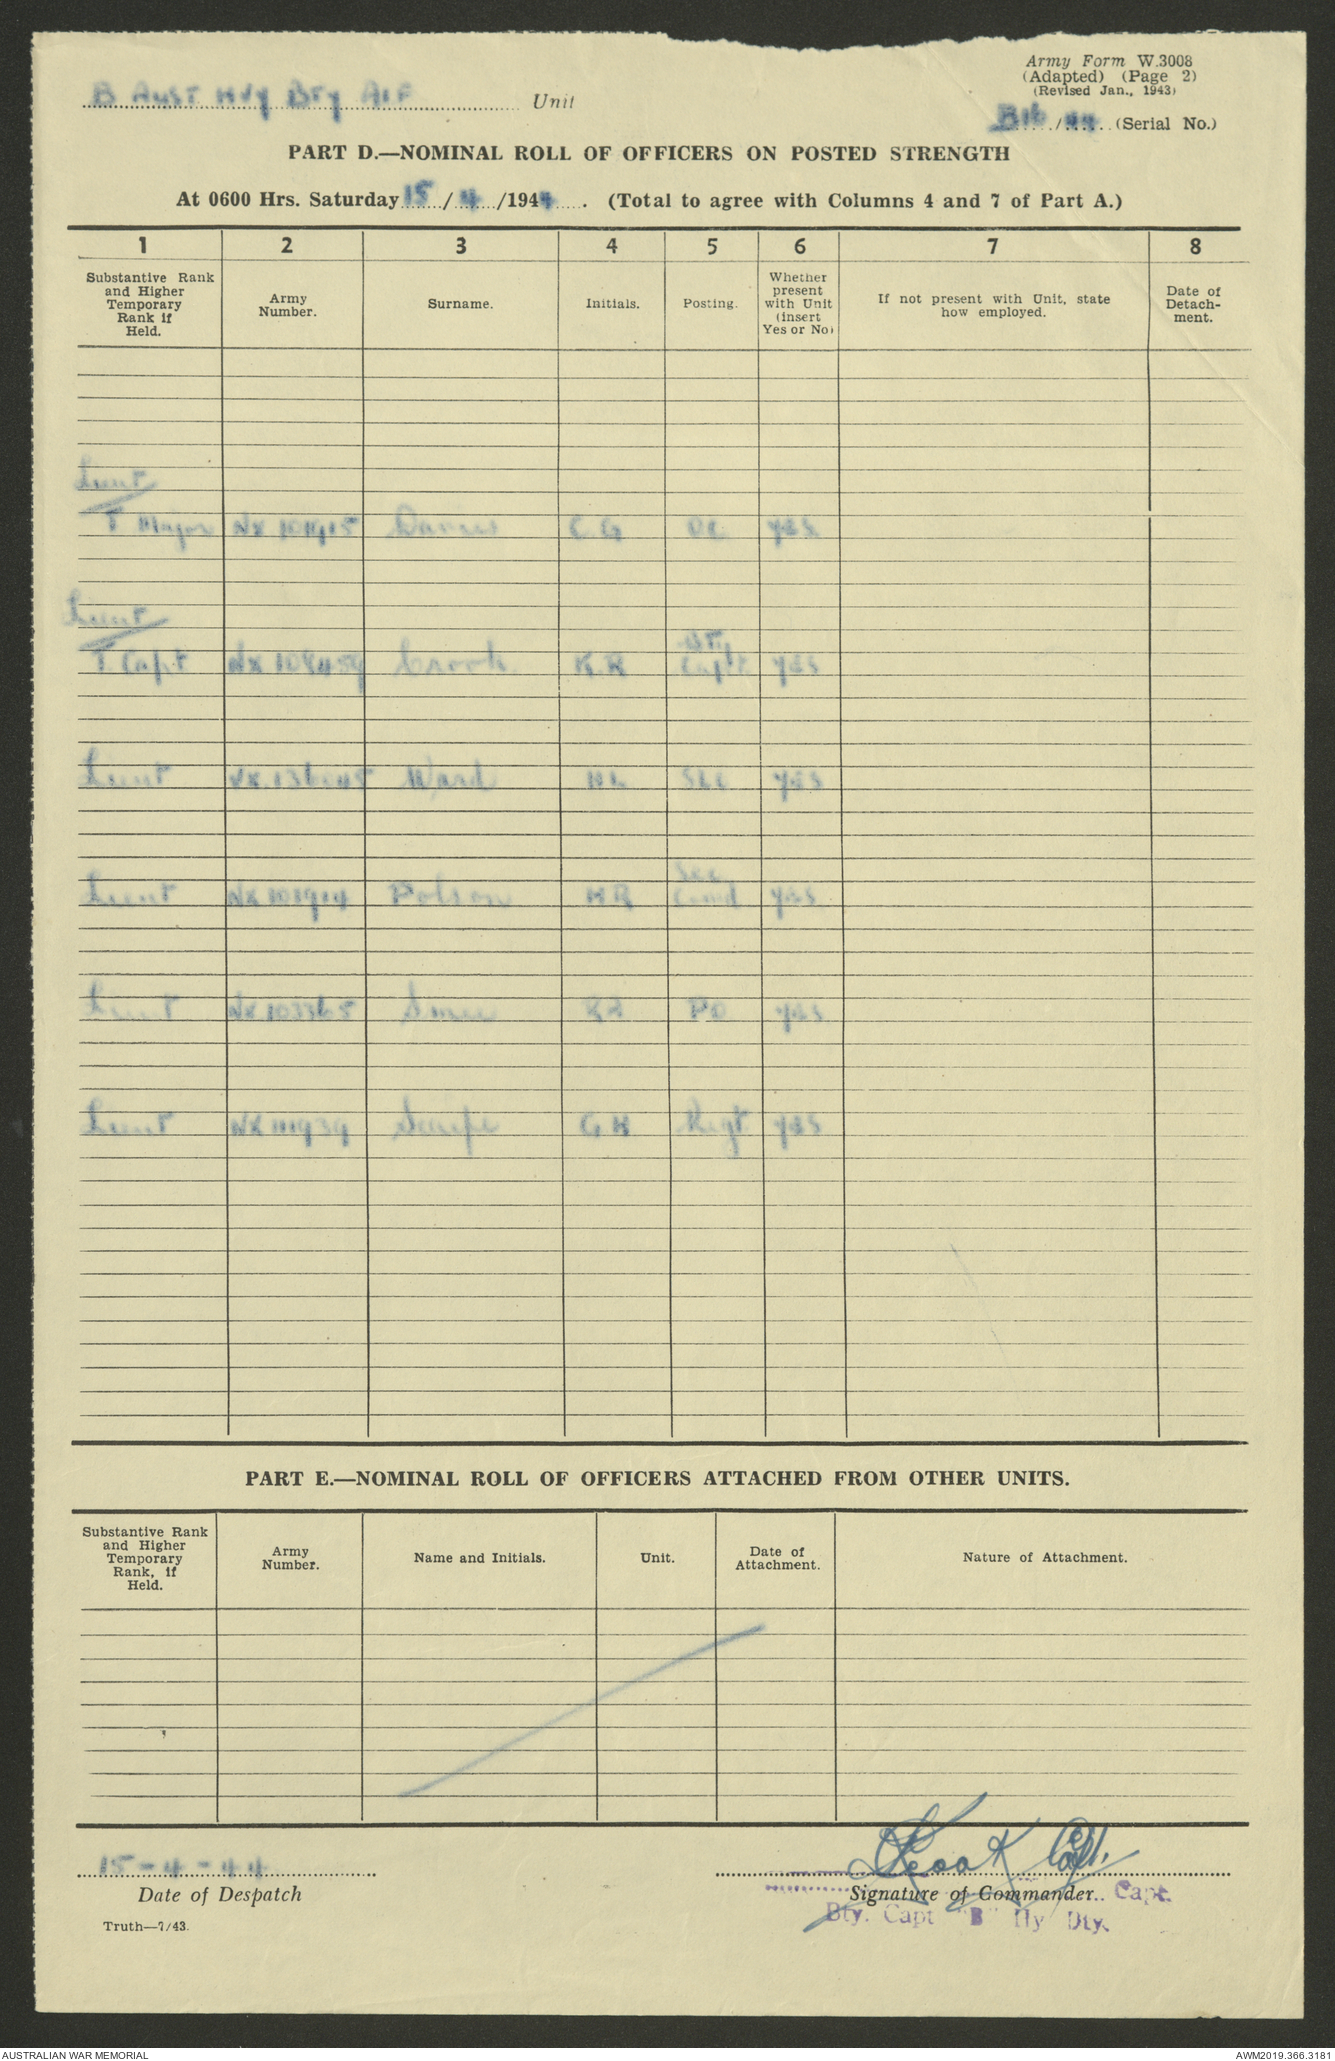 B Aust Hvy Bty AIF Unit
Army Form W.3008
(Adapted) (Page 2)
(Revised Jan., 1943)
B16/44 (Serial No.)
PART D.—NOMINAL ROLL OF OFFICERS ON POSTED STRENGTH
At 0600 Hrs. Saturday 15/4/1944. (Total to agree with Columns 4 and 7 of Part A.)
1 2 3 4 5 6 7 8
Substantive Rank and Higher Temporary Rank if Held.
Army Number.
Surname.
Initials.
Posting.
Whether present with Unit (insert Yes or No)
If not present with Unit, state how employed.
Date of Detach-ment.
Lieut
T Major Davies C.G OC yes
Lieut Bty
T Capt K.R Capt yes
Lieut Ward yes
Lieut Sec
NX101914 Polson HR Comd yes
Lieut NX103365 PO yes
Lieut G.H Regt yes
PART E.—NOMINAL ROLL OF OFFICERS ATTACHED FROM OTHER UNITS.
Substantive Rank and Higher Temporary Rank, if Held.
Army Number.
Name and Initials.
Unit.
Date of Attachment.
Nature of Attachment.
15-4-44 Capt.
Date of Despatch
Signature of Commander.. Capt.
Truth—7/43.
Bty. Capt "B" Hy Bty.
AUSTRALIAN WAR MEMORIAL
AWM2019.366.3181